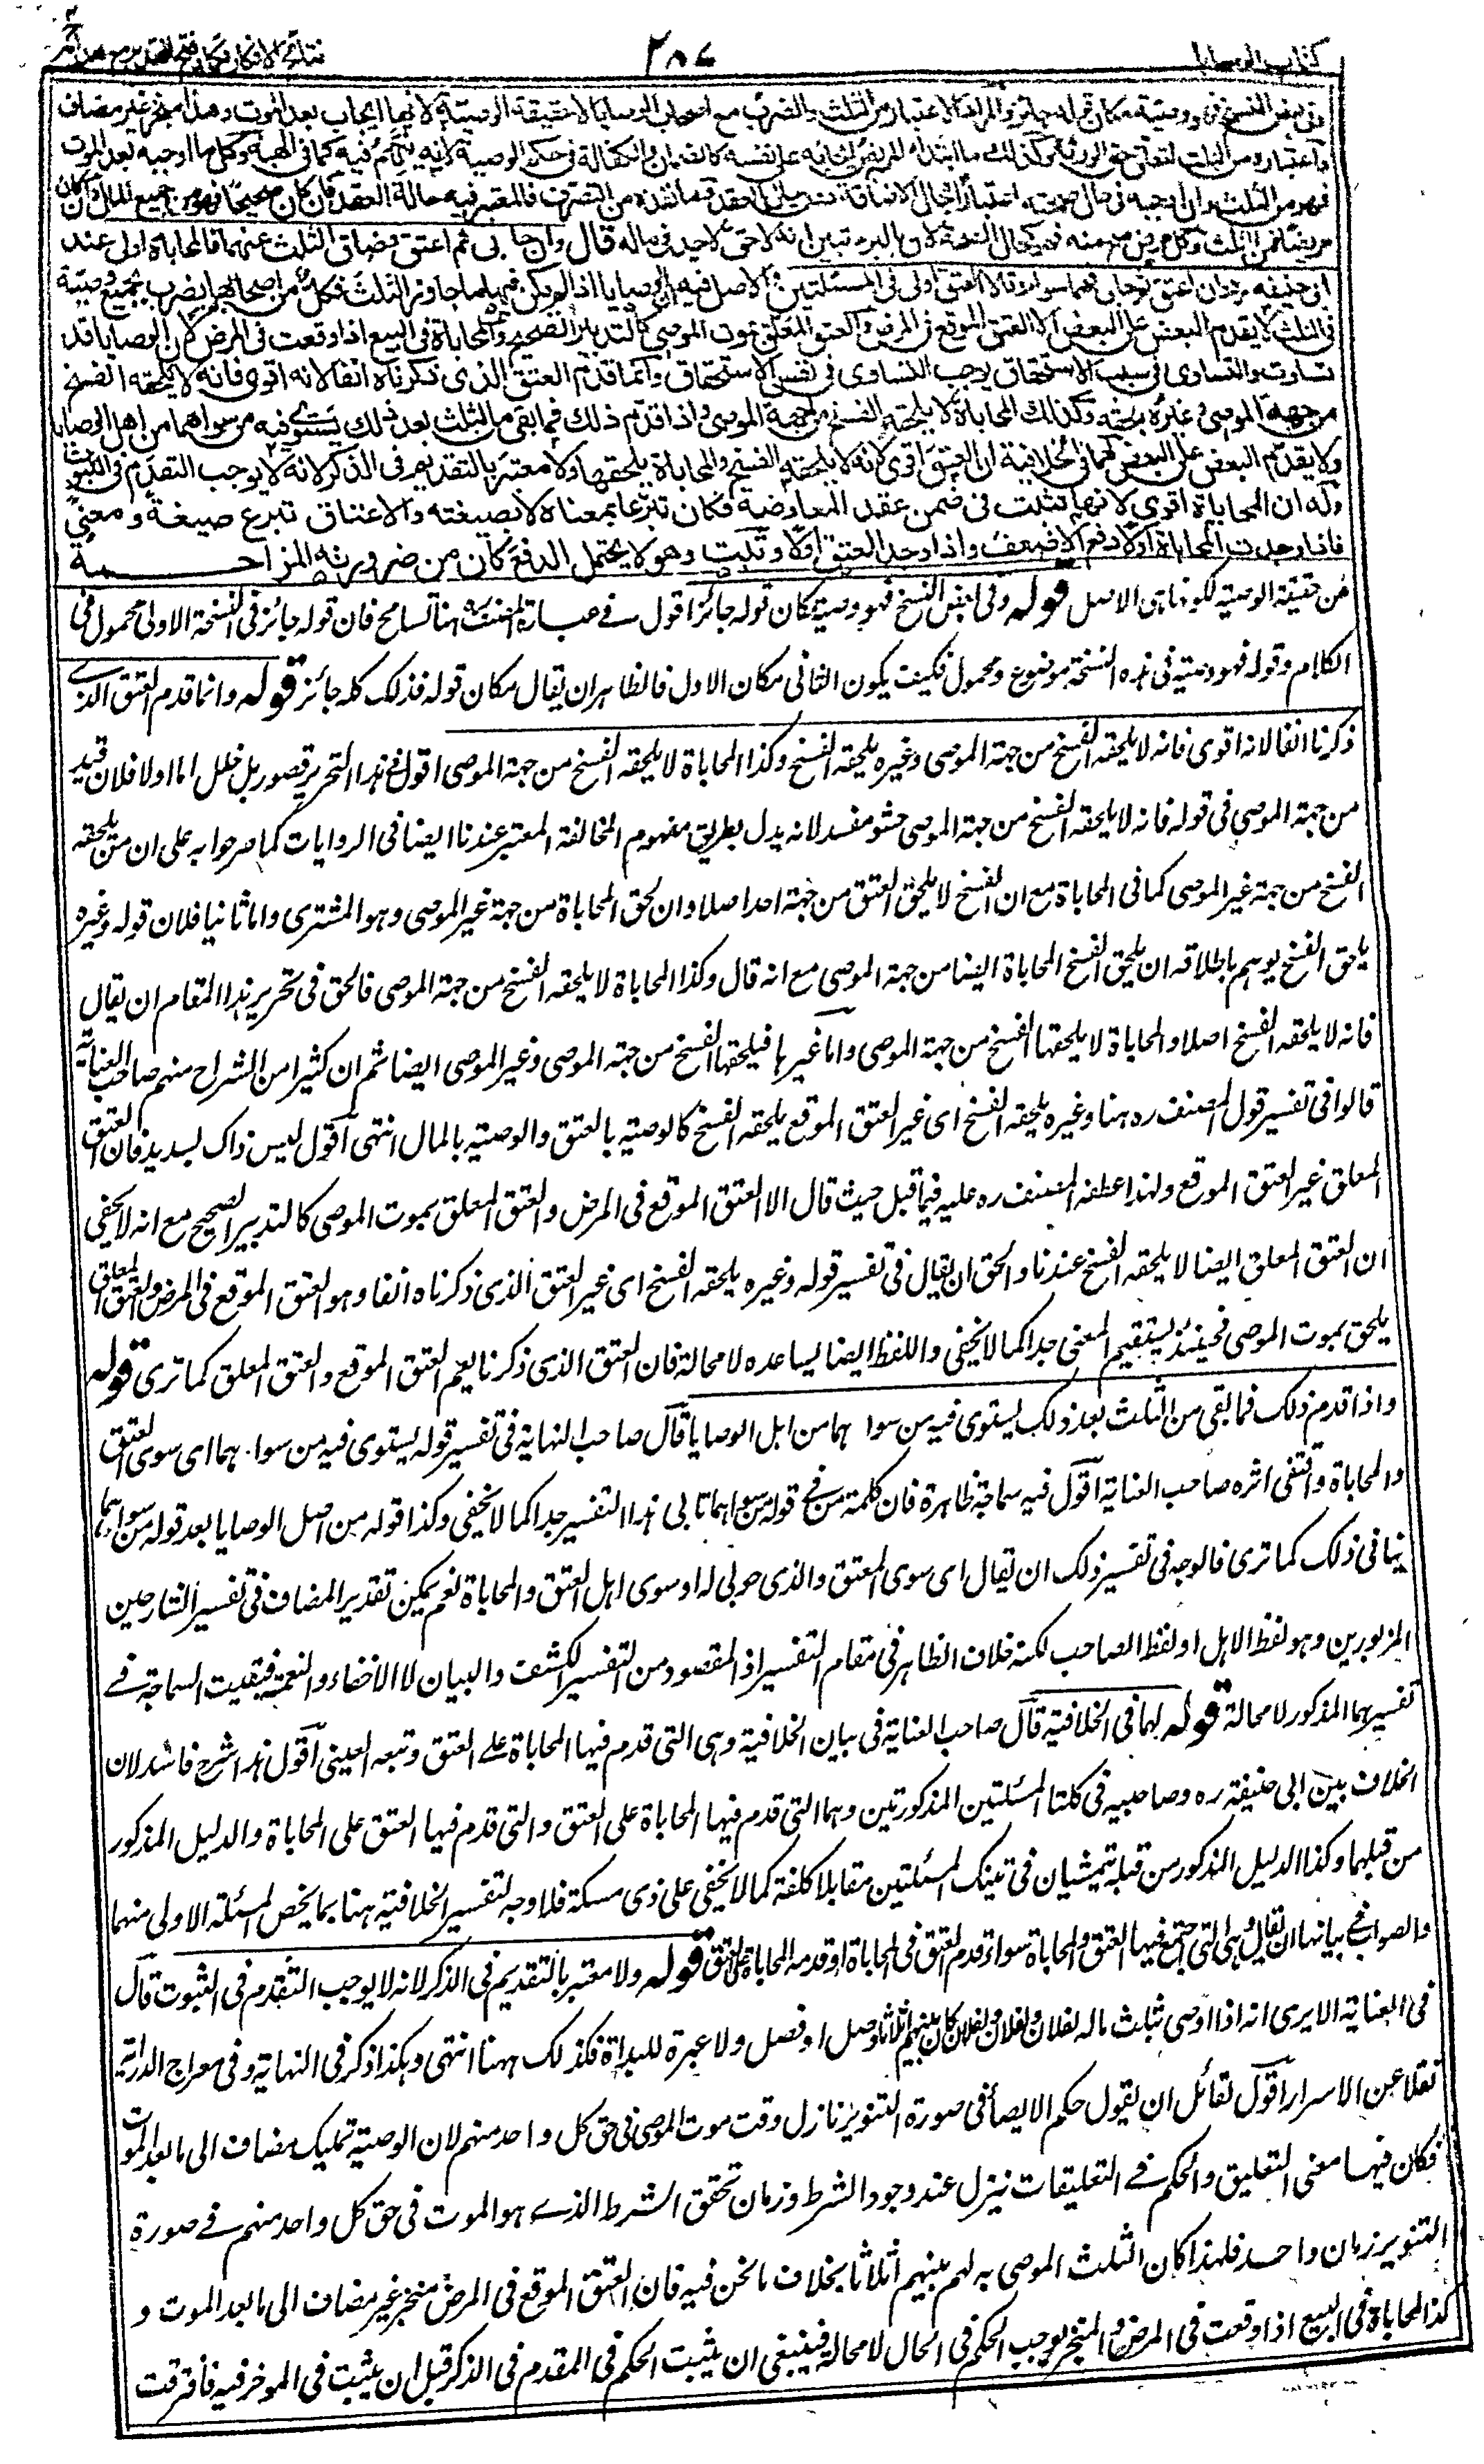 كتاب الوصايا
٢٨٧
نتائج الافكار تكملة فتح القدير مع هداية
وفى بعض النسخ فهو وصية مكان قوله جائز والمراد الاعتبار من الثلث والضرب مع اصحاب الوصايا لا حقيقة الوصية لانها ايجاب بعد الموت وهذا منجز غير مضاف
واعتباره من الثلث لتعلق حق الورثة وكذلك ما ابتدأ المريض ايجابه على نفسه كالضمان والكفالة فى حكم الوصية لانه يتهم فيه كما فى الهبة وكل ما اوجبه بعد الموت
فهو من الثلث وان اوجبه فى حال صحته اعتبارا بحال الاضافة دون حال العقد وما نفذه من التصرف فالمعتبر فيه حالة العقد فان كان صحيحا فهو من جميع المال وان كان
مريضا فمن الثلث وكل مرض صح منه فهو كحال الصحة لان بالبرء تبين انه لا حق لاحد فى ماله قال وان حابى ثم اعتق وضاق الثلث عنهما فالمحاباة اولى عند
ابى حنيفة ره وان اعتق ثم حابى فهما سواء وقالا العتق اولى فى المسئلتين والاصل فيه ان الوصايا اذا لم يكن فيها ما جاوز الثلث فكل من اصحابها يضرب بجميع وصيته
فى الثلث لا يقدم البعض على البعض الا العتق الموقع فى المرض والعتق المعلق بموت الموصى كالتدبير الصحيح والمحاباة فى البيع اذا وقعت فى المرض لان الوصايا قد
تساوت والتساوى فى سبب الاستحقاق يوجب التساوى فى نفس الاستحقاق وانما قدم العتق الذى ذكرناه انفا لانه اقوى فانه لا يلحقه الفسخ
من جهة الموصى وغيره يلحقه وكذلك المحاباة لا يلحقها الفسخ من جهة الموصى واذا قدم ذلك فما بقى من الثلث بعد ذلك يستوى فيه من سواهما من اهل الوصايا
ولا يقدم البعض على البعض لهما فى الخلافية ان العتق اقوى لانه لا يلحقه الفسخ والمحاباة يلحقها ولا معتبر بالتقديم فى الذكر لانه لا يوجب التقدم فى الثبوت
وله ان المحاباة اقوى لانها تثبت فى ضمن عقد المعاوضة فكان تبرعا بمعناه لا بصيغته والاعتاق تبرع صيغة ومعنى
فاذا وجدت المحاباة اولا دفع الاضعف واذا وجد العتق اولا وثبت وهو لا يحتمل الدفع كان من ضرورته المزاحمة
من حقيقة الوصية لكونها هى الاصل قوله وفى بعض النسخ فهو وصية مكان قوله جائز اقول فى عبارة المصنف ره هنا تسامح فان قوله جائز فى النسخة الاولى محمول فى
الكلام وقوله فهو وصية فى هذه النسخة موضوع ومحمول فكيف يكون الثانى مكان الاول فالظاهر ان يقال مكان قوله فذلك كله جائز قوله وانما قدم العتق الذى
ذكرنا انفا لانه اقوى فانه لا يلحقه الفسخ من جهة الموصى وغيره يلحقه الفسخ وكذا المحاباة لا يلحقه الفسخ من جهة الموصى اقول فى هذا التحرير قصور بل خلل اما اولا فلان قيد
من جهة الموصى فى قوله فانه لا يلحقه الفسخ من جهة الموصى حشو مفسد لانه يدل بطريق مفهوم المخالفة المعتبر عندنا ايضا فى الروايات كما صرحوا به على ان يلحقه
الفسخ من جهة غير الموصى كما فى المحاباة مع ان الفسخ لا يلحق العتق من جهة احد اصلا وان لحق المحاباة من جهة غير الموصى وهو المشترى واما ثانيا فلان قوله وغيره
يلحقه الفسخ يوهم باطلاقه ان يلحق الفسخ المحاباة ايضا من جهة الموصى مع انه قال وكذا المحاباة لا يلحقه الفسخ من جهة الموصى فالحق فى تحرير هذا المقام ان يقال
فانه لا يلحقه الفسخ اصلا والمحاباة لا يلحقها الفسخ من جهة الموصى واما غيرها فيلحقها الفسخ من جهة الموصى وغير الموصى ايضا ثم ان كثيرا من الشراح منهم صاحب العناية
قالوا فى تفسير قول المصنف ره هنا وغيره يلحقه الفسخ اى غير العتق الموقع يلحقه الفسخ كالوصية بالعتق والوصية بالمال انتهى اقول ليس ذاك بسديد فان العتق
المعلق غير العتق الموقع ولهذا عطفه المصنف ره عليه فيما قبل حيث قال الا العتق الموقع فى المرض والعتق المعلق بموت الموصى كالتدبير الصحيح مع انه لا يخفى
ان العتق المعلق ايضا لا يلحقه الفسخ عندنا والحق ان يقال فى تفسير قوله وغيره يلحقه الفسخ اى غير العتق الذى ذكرناه انفا وهو العتق الموقع فى المرض والعتق المعلق
يلحق بموت الموصى فحينئذ يستقيم المعنى جدا كما لا يخفى واللفظ ايضا يساعده لا محالة فان العتق الذى ذكرنا يعم العتق الموقع والعتق المعلق كما ترى قوله
واذا قدم ذلك فما بقى من الثلث بعد ذلك يستوى فيه من سوا هما من اهل الوصايا قال صاحب النهاية فى تفسير قوله يستوى فيه من سوا هما اى سوى العتق
والمحاباة واقتفى اثره صاحب العناية اقول فيه سماجة ظاهرة فان كلمة من فى قوله من سواهما تابى هذا التفسير جدا كما لا يخفى وكذا قوله من اهل الوصايا بعد قوله من سواهما
ينافى ذلك كما ترى فالوجه فى تفسير ذلك ان يقال اى سوى المعتق والذى حوبى له او سوى اهل العتق والمحاباة نعم يمكن تقدير المضاف فى تفسير الشارحين
المزبورين وهو لفظ الاهل او لفظ الصاحب لكنه خلاف الظاهر فى مقام التفسير اذ المقصود من التفسير الكشف والبيان لا الاخفاء والتعمية فبقيت السماجة فى
تفسيرهما المذكور لا محالة قوله لهما فى الخلافية قال صاحب العناية فى بيان الخلافية وهى التى قدم فيها المحاباة على العتق وتبعه العينى اقول هذا شرح فاسد لان
الخلاف بين ابى حنيفة ره وصاحبيه فى كلتا المسئلتين المذكورتين وهما التى قدم فيها المحاباة على العتق والتى قدم فيها العتق على المحاباة والدليل المذكور
من قبلهما وكذا الدليل المذكور من قبله يتمشيان فى تينك المسئلتين مقابلا كلفة كما لا يخفى على ذى مسكة فلا وجه لتفسير الخلافية هنا بما يخص المسئلة الاولى منهما
والصواب فى بيانها ان يقال وهى التى اجتمع فيها العتق والمحاباة سواء قدم العتق فى المحاباة او قدمه المحاباة على العتق قوله ولا معتبر بالتقديم فى الذكر لانه لا يوجب التقدم فى الثبوت قال
فى العناية الا يرى انه اذا اوصى بثلث ماله لفلان ولفلان ولفلان كان بينهم اثلاثا وصل او فصل ولا عبرة للبداة فكذلك ههنا انتهى وهكذا ذكر فى النهاية وفى معراج الدراية
نقلا عن الاسرار اقول لقائل ان يقول حكم الايصاء فى صورة التنوير نازل وقت موت الموصى فى حق كل واحد منهم لان الوصية تمليك مضاف الى ما بعد الموت
فكان فيها معنى التعليق والحكم فى التعليقات ينزل عند وجود الشرط وزمان تحقق الشرط الذى هو الموت فى حق كل واحد منهم فى صورة
التنوير زمان واحد فلهذا كان الثلث الموصى به لهم بينهم اثلاثا بخلاف ما نحن فيه فان العتق الموقع فى المرض منجز غير مضاف الى ما بعد الموت و
كذا المحاباة فى البيع اذا وقعت فى المرض والمنجز يوجب الحكم فى الحال لا محالة فينبغى ان يثبت الحكم فى المقدم فى الذكر قبل ان يثبت فى الموخر فيه فافترقت